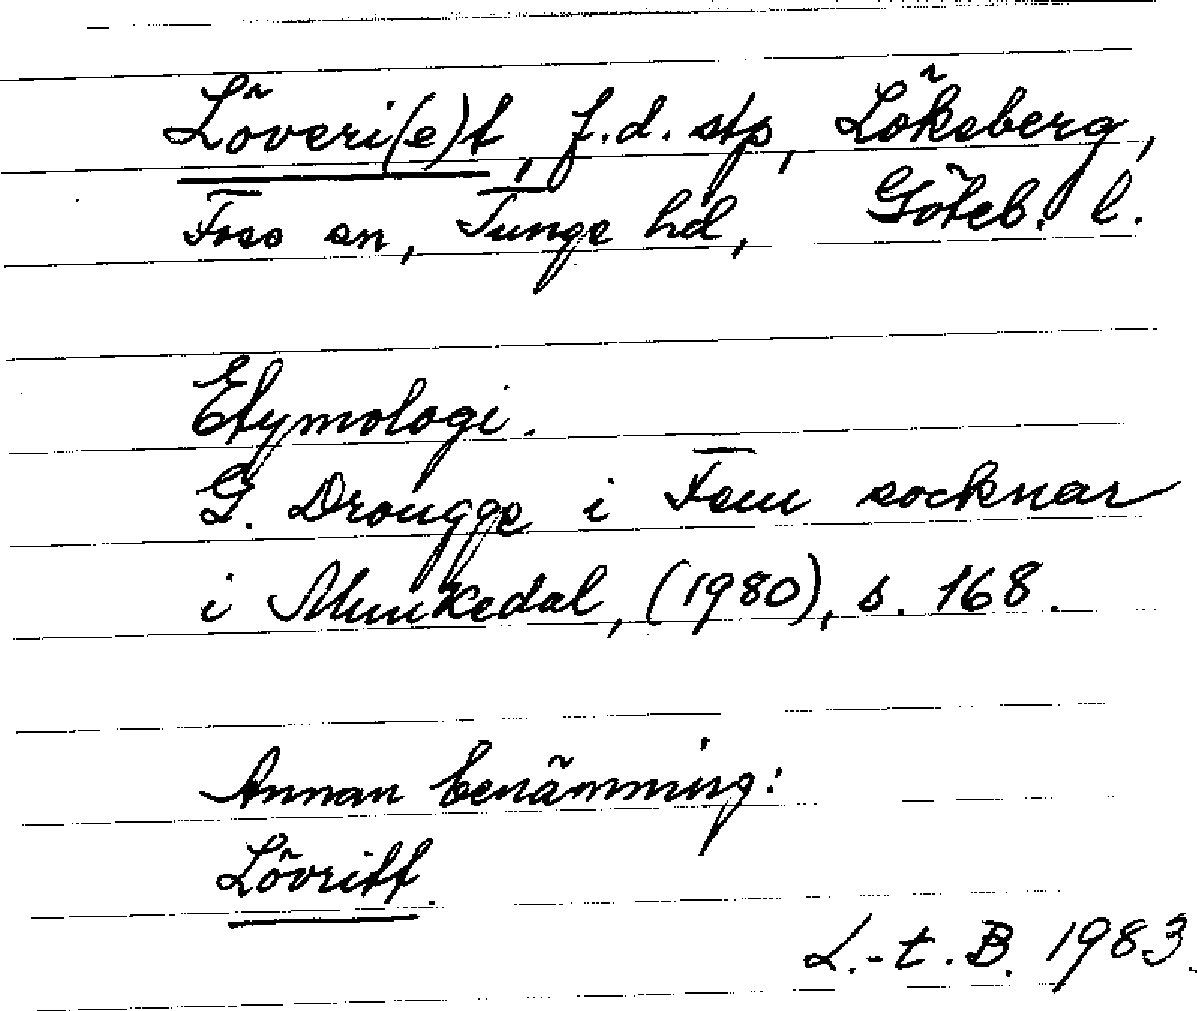 Löveri(e)t, f.d. stp, Lökeberg,
Foss sn, Tunge hd, Göteb. l.
Etymologi.
G. Drougge i Fem socknar
i Munkedal, (1980), s. 168.
Annan benämning:
Lövritt.
L.-t. B. 1983.